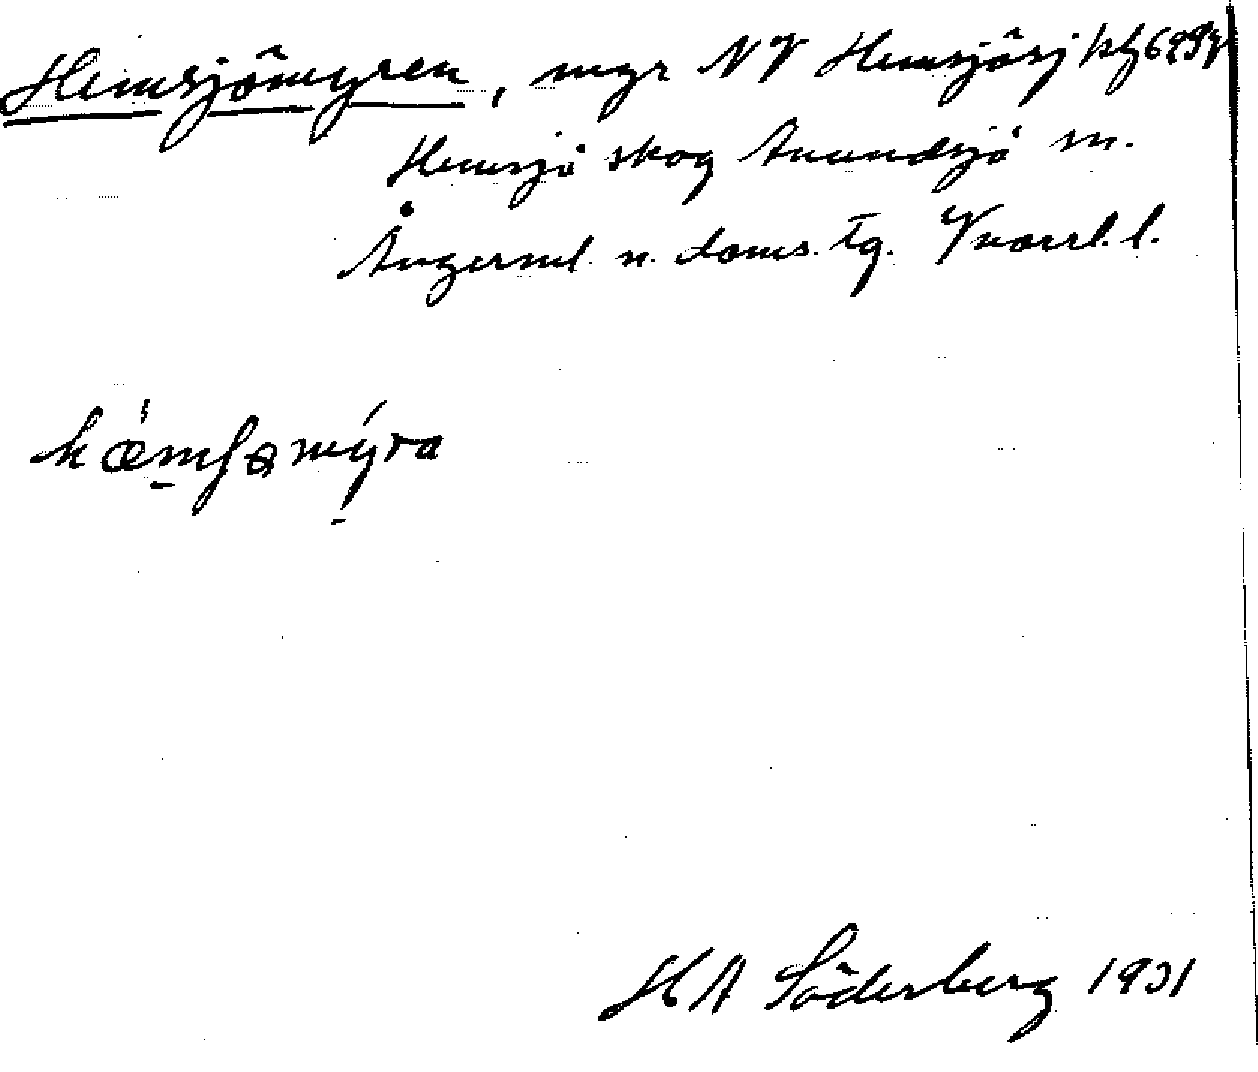 Hemsjömyren, myr NV Hemsjösj
Hemsjö skog Anundsjö sn.
Ångerml. n. doms. tg. Vnorrl. l.
hæmʃəmýra
HA Söderberg 1931